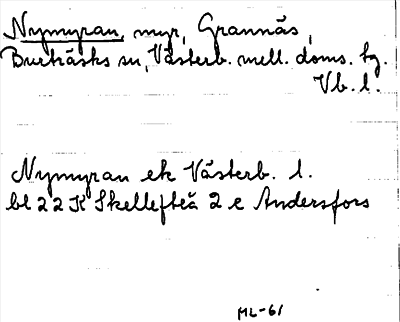 Nymyran, myr, Grannäs,
Burträsks sn, Västerb. mell. doms. tg.
Vb. l.
Nymyran ek Västerb. l.
bl 22 K Skellefteå 2 e Andersfors
ML-61